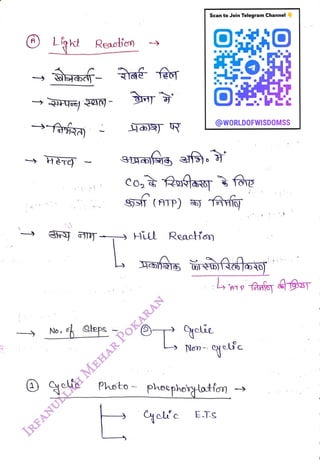 Scan to Join Telegram Channel 👇
@WORLDOFWISDOMSS
Ⓐ Light Reaction →
→ खोजकर्ता - रोबर्ट हिल
→ सम्पन्न स्थान - ग्रेना में
→ निर्भरता - प्रकाश पर
→ महत्व - अप्रकाशिक अभि० में
CO₂ के स्थिरीकरण के लिए
ऊर्जा (ATP) का निर्माण
→ अन्य नाम → Hill Reaction
↳ प्रकाशिक फॉस्फोरिलीकरण
↳ ATP निर्माण की क्रिया
→ No. of Steps - ② → Cyclic
↳ Non-cyclic
① Cyclic Photo-phosphorylation →
→ Cyclic E.T.S
IRFANULLAH MEHAR POKARAN